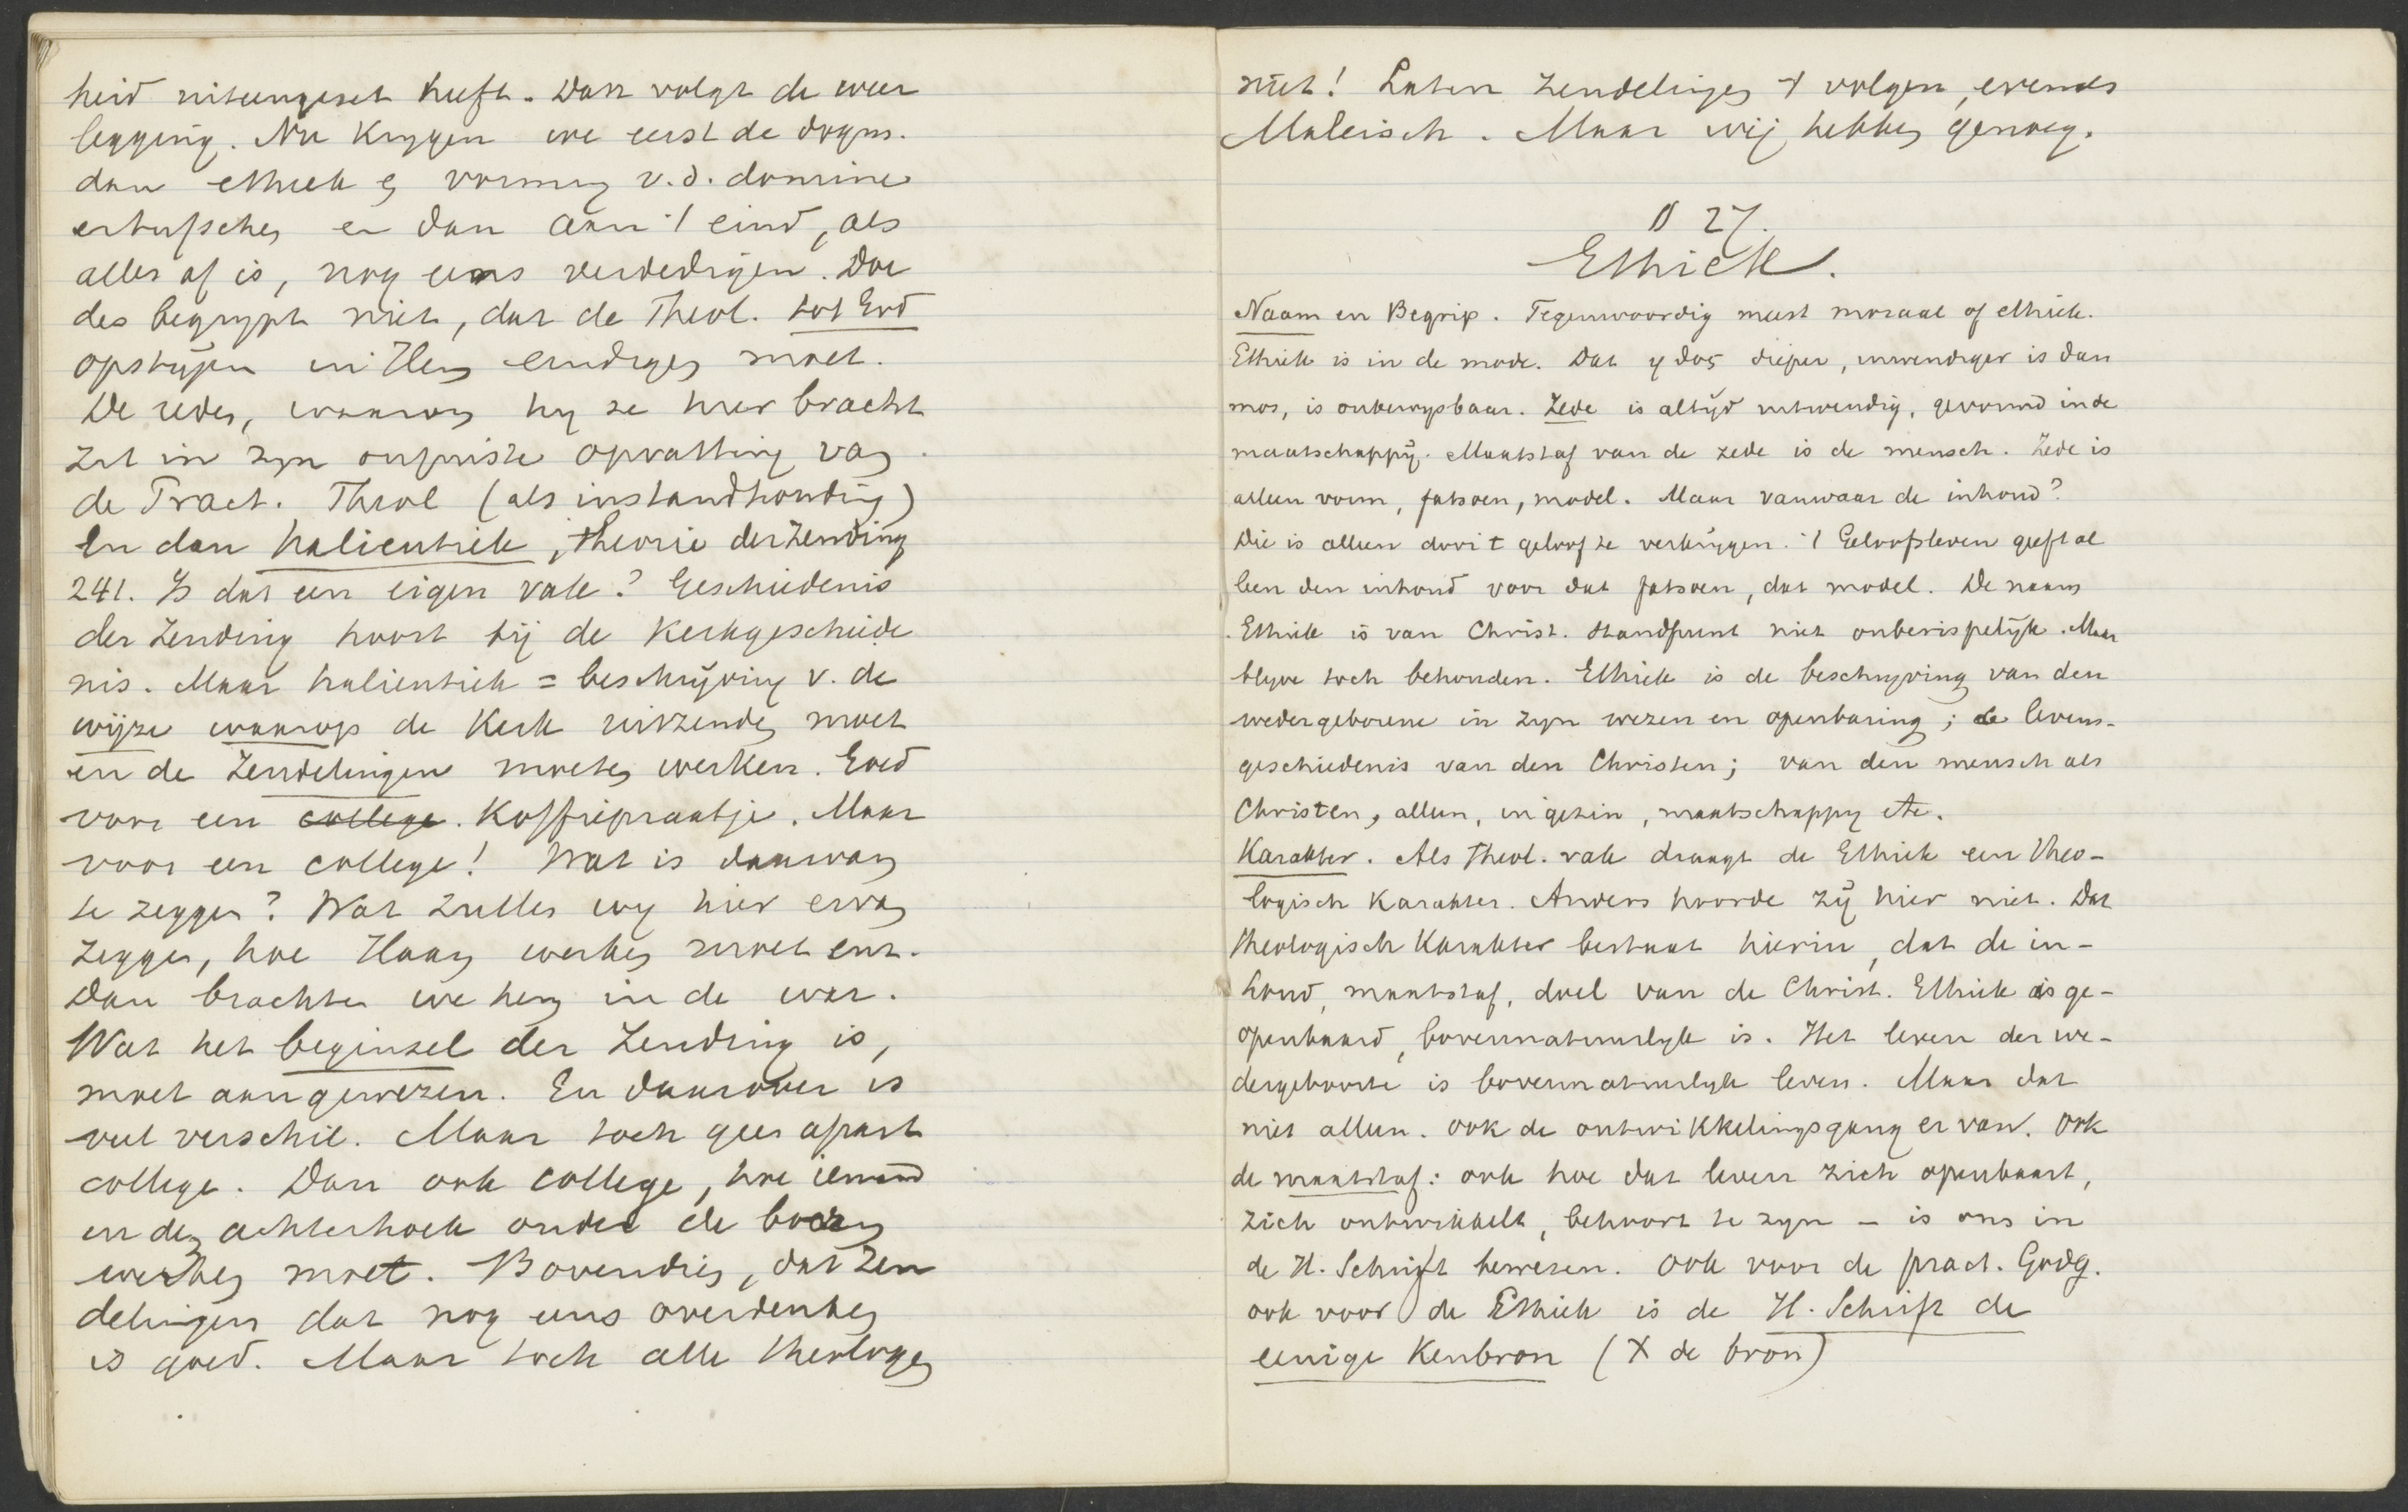 heid uiteengezet heeft. Dan volgt de weer
legging. Nu krygen we eerst de dogm.
dan ethiek en vorming v.d. dominé
ertusschen en dan aan 't eind, als
alles af is, nog eens verdedigen. Doe
des begrypt niet, dat de Theol. tot God
opstijgen in Hem eindigen moet.
De reden, waarom hy ze hier bracht
zit in zyn onjuiste opvatting van
de Pract. Theol (als instandhouding)
En dan halieutiek, theorie der Zending
241. Is dat een eigen vak? Geschiedenis
der Zending hoort bij de Kerkgeschiede
nis. Maar halieutiek = beschrijving v. de
wijze waarop de Kerk uitzenden moet
en de Zendelingen moeten werken. Goed
voor een college. Koffiepraatje. Maar
voor een college! Wat is daarvan
te zeggen? Wat zullen wy hier ervan
zeggen, hoe Haan werken moet enz.
Dan brachten we hem in de war.
Wat het beginsel der Zending is,
moet aangewezen. En daarover is
veel verschil. Maar toch geen apart
college. Dan ook college, hoe iemand
in den achterhoek onder de boeren
werken moet. Bovendien, dat Zen
delingen dat nog eens overdenken
is goed. Maar toch alle theologen
niet! Laten Zendelingen 't volgen, evenals
Maleisch. Maar wij hebben genoeg.
§ 27.
Ethiek.
Naam en Begrip. Tegenwoordig meest moraal of ethiek.
Ethiek is in de mode. Dat ηθος dieper, inwendiger is dan
mos, is onbewysbaar. Zede is altijd uitwendig, gevormd in de
maatschappij. Maatstaf van de zede is de mensch. Zede is
alleen vorm, fatsoen, model. Maar vanwaar de inhoud?
Die is alleen door 't geloof te verkrijgen. 't Geloofsleven geeft al
leen den inhoud voor dat fatsoen, dat model. De naam
Ethiek is van Christ. standpunt niet onberispelijk. Maar
blyve toch behouden. Ethiek is de beschryving van den
wedergeborene in zyn wezen en openbaring; de levens-
geschiedenis van den Christen; van den mensch als
Christen, alleen, in gezin, maatschappy etc.
Karakter. Als Theol. vak draagt de Ethiek een Theo-
logisch Karakter. Anders hoorde zij hier niet. Dat
theologisch Karakter bestaat hierin, dat de in-
houd, maatstaf, doel van de Christ. Ethiek is ge-
openbaard, bovennatuurlyk is. Het leven der we-
dergeboorte is bovennatuurlyk leven. Maar dat
niet alleen. Ook de ontwikkelingsgang er van. Ook
de maatstaf: ook hoe dat leven zich openbaart,
zich ontwikkelt, behoort te zyn – is ons in
de H. Schrift bewezen. Ook voor de pract. Godg.
ook voor de Ethiek is de H. Schrift de
eenige Kenbron (X de bron)